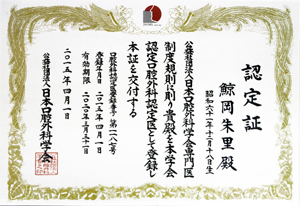 認定証
鯨岡朱里殿
昭和六十一年十二月十八日生
公益社団法人日本口腔外科学会専門医
制度規則に則り貴殿を本学会
認定口腔外科認定医として登録し
本証を交付する
口腔外科認定医登録番号 第一一八七号
登録年月日 二〇一五年四月一日
有効期限 二〇二〇年三月三十一日
二〇一五年四月一日
公益社団法人日本口腔外科学会